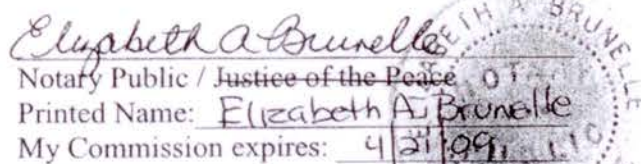 Elizabeth A Brunelle
Notary Public / Justice of the Peace
Printed Name: Elizabeth A. Brunelle
My Commission expires: 4/21/09
BETH A. BRUNELLE